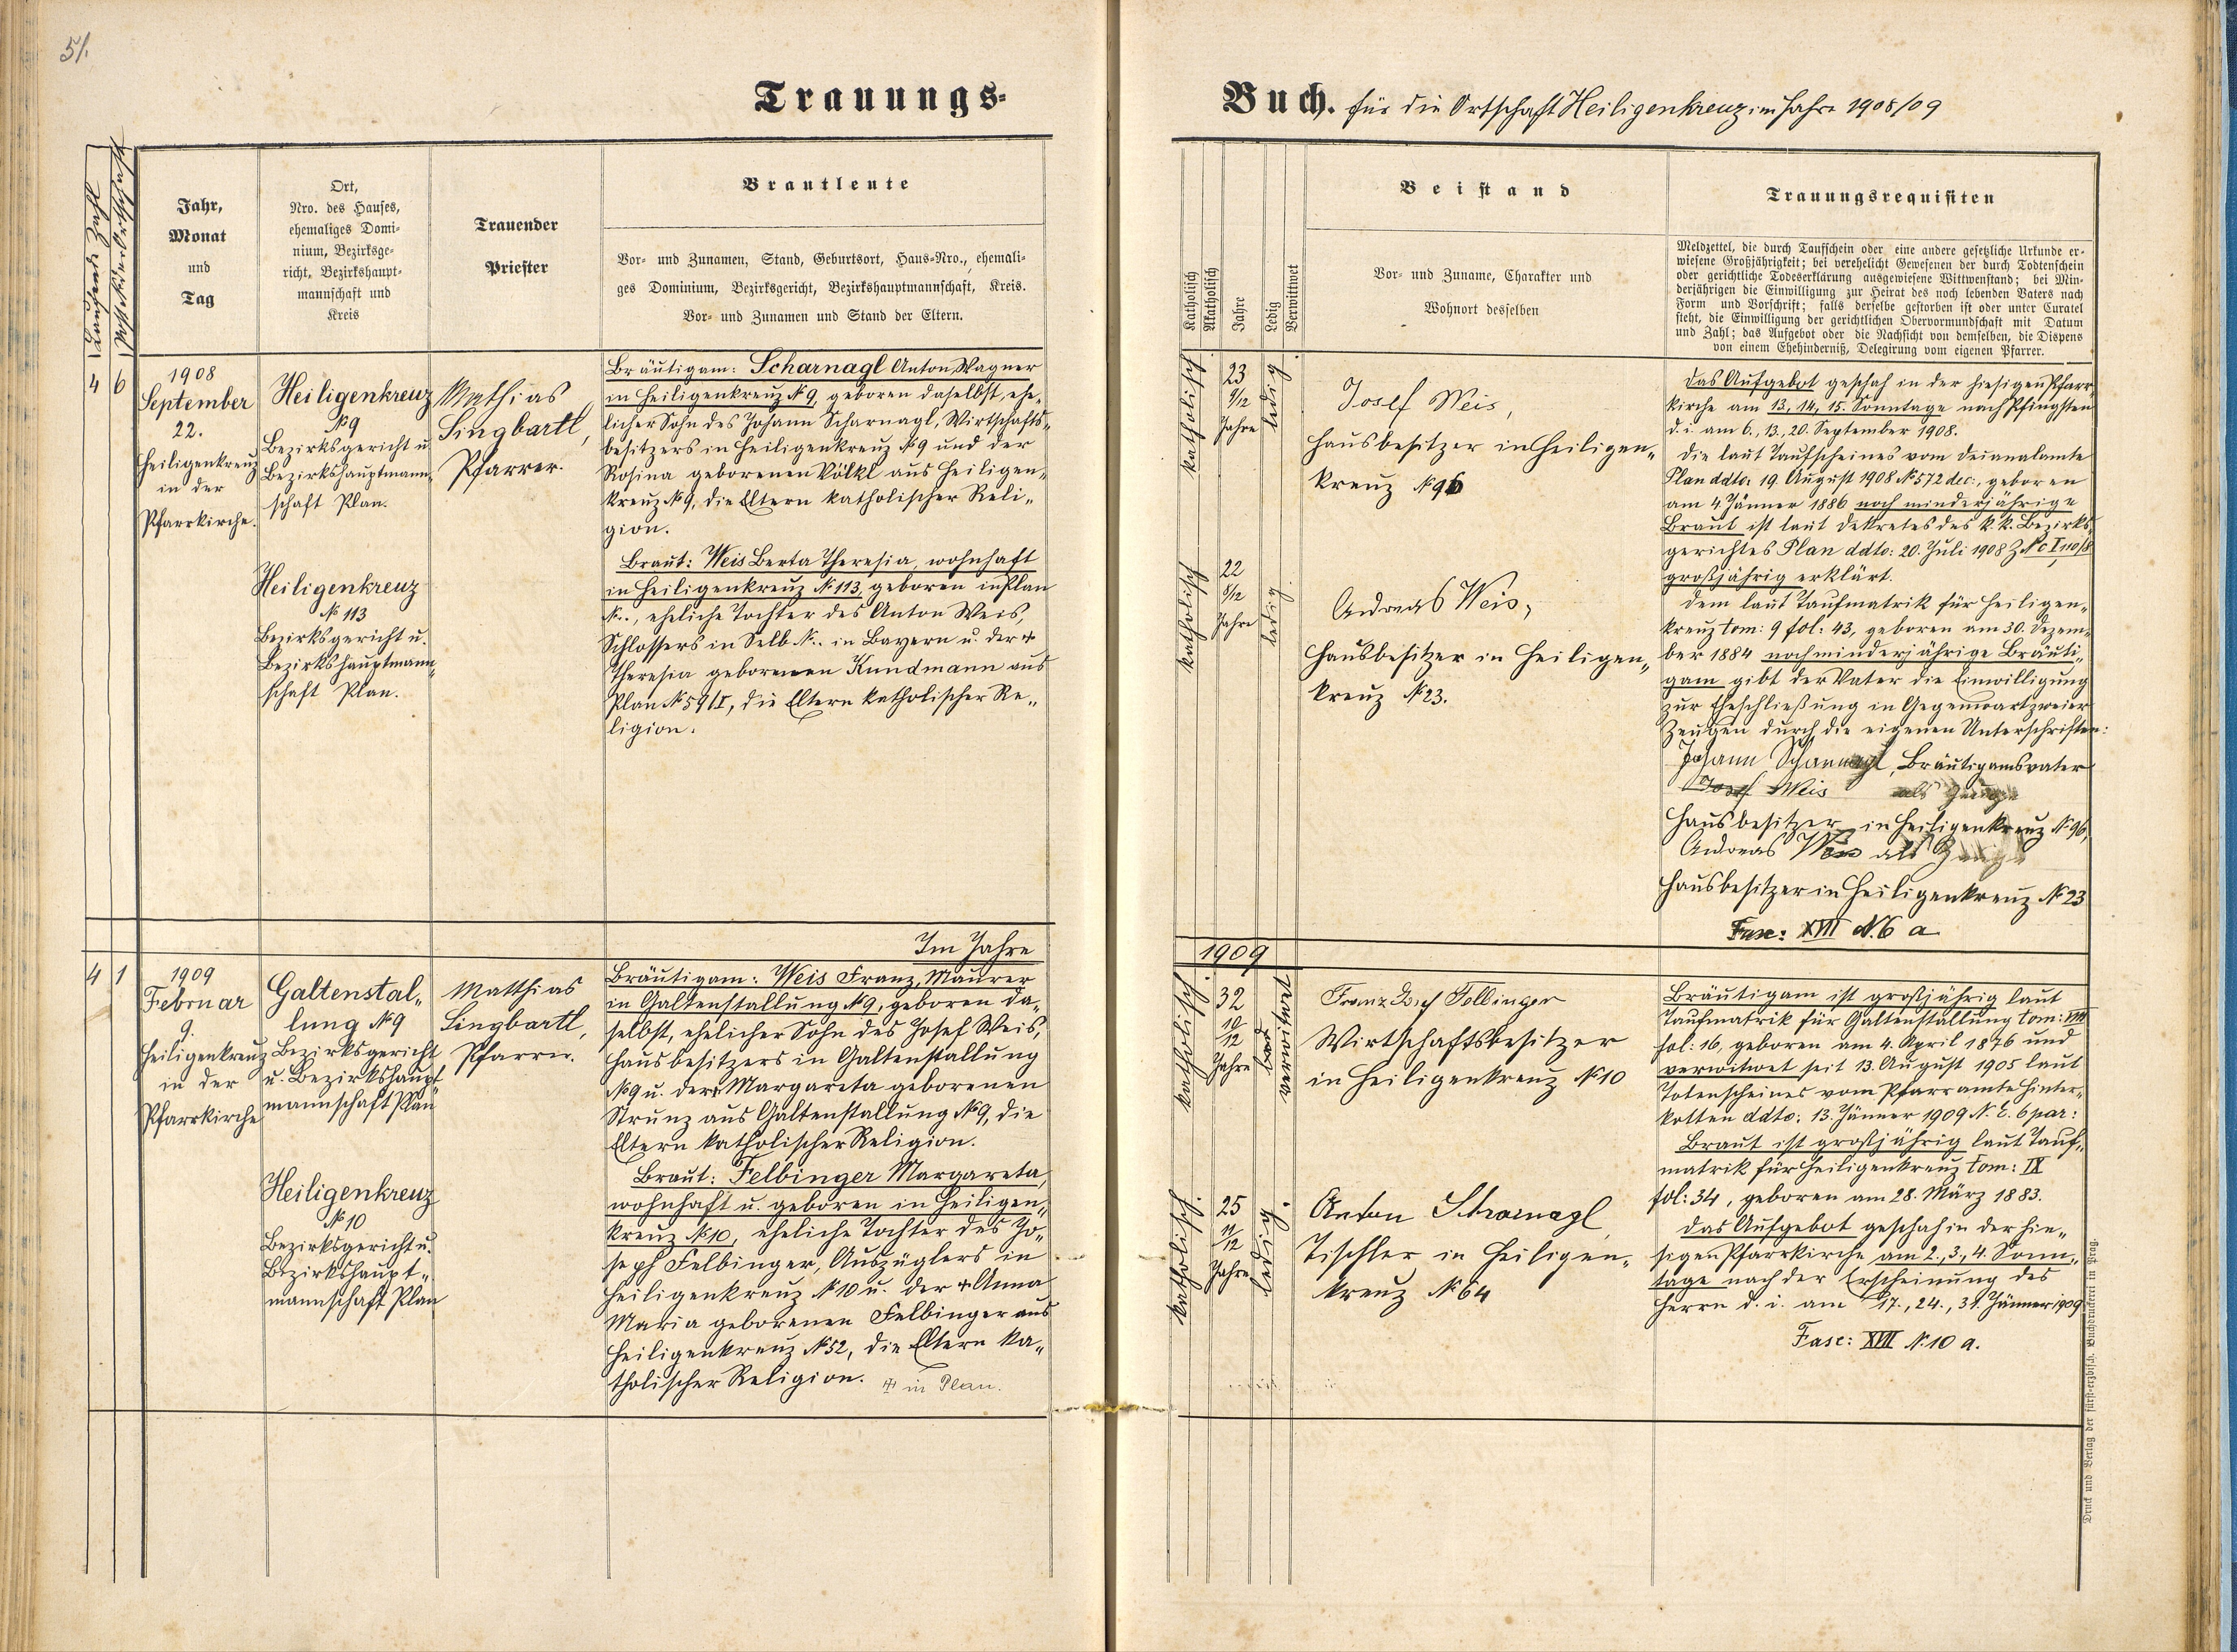 51.
Trauungs-
Buch. für die Ortschaft Heiligenkreuz im Jahre 1908/09
Jahr,
Monat
und
Tag
Ort,
Nro. des Hauses,
ehemaliges Domi-
nium, Bezirksge-
richt, Bezirkshaupt-
mannschaft und
Kreis
Trauender
Priester
Brautleute
Vor- und Zunamen, Stand, Geburtsort, Haus-Nro., ehemali-
ges Dominium, Bezirksgericht, Bezirkshauptmannschaft, Kreis.
Vor- und Zunamen und Stand der Eltern.
Katholisch
Akatholisch
Jahre
Ledig
Verwittwet
Beistand
Vor- und Zuname, Charakter und
Wohnort desselben
Trauungsrequisiten
Meldzettel, die durch Taufschein oder eine andere gesetzliche Urkunde er-
wiesene Großjährigkeit; bei verehelicht Gewesenen der durch Todtenschein
oder gerichtliche Todeserklärung ausgewiesene Wittwenstand; bei Min-
derjährigen die Einwilligung zur Heirat des noch lebenden Vaters nach
Form und Vorschrift; falls derselbe gestorben ist oder unter Curatel
steht, die Einwilligung der gerichtlichen Obervormundschaft mit Datum
und Zahl; das Aufgebot oder die Nachsicht von demselben, die Dispens
von einem Ehehinderniß, Delegirung vom eigenen Pfarrer.
4 6
1908
September
22.
Heiligenkreuz
in der
Pfarrkirche.
Heiligenkreuz
№ 9
Bezirksgericht u.
Bezirkshauptmann„
schaft Plan.
Heiligenkreuz
№ 113
Bezirksgericht u.
Bezirkshauptmann„
schaft Plan.
Mathias
Singbartl,
Pfarrer.
Bräutigam: Scharnagl Anton, Wagner
in Heiligenkreuz № 9, geboren daselbst, ehe„
licher Sohn des Johann Scharnagl, Wirtschafts„
besitzers in Heiligenkreuz № 9 und der
Rosina geborenen Völkl aus Heiligen„
kreuz № 9, die Eltern katholischer Reli„
gion.
Braut: Weis Berta Theresia, wohnhaft
in Heiligenkreuz № 113, geboren in Plan
№.., eheliche Tochter des Anton Weis,
Schlossers in Selb №.. in Bayern u. der +
Theresia geborenen Kundmann aus
Plan № 59/I, die Eltern katholischer Re„
ligion.
katholisch
23
9/12
Jahre
ledig
katholisch
22
8/12
Jahre
ledig.
Josef Weis,
Hausbesitzer in Heiligen„
kreuz № 96
Andreas Weis,
Hausbesitzer in Heiligen„
kreuz № 23.
Das Aufgebot geschah in der hiesigen Pfarr„
kirche am 13, 14, 15. Sonntage nach Pfingsten
d. i. am 6., 13., 20. September 1908.
Die laut Taufscheines vom Dekanalamte
Plan ddto: 19. August 1908 № 572 dec:, geboren
am 4. Jänner 1886 noch minderjährige
Braut ist laut Dekretes des k. k. Bezirks„
gerichtes Plan ddto: 20. Juli 1908 Z Nc I 110/8
großjährig erklärt.
Dem laut Taufmatrik für Heiligen„
kreuz tom: 9 fol: 43, geboren am 30. Dezem„
ber 1884 noch minderjährige Bräuti„
gam gibt der Vater die Einwilligung
zur Eheschließung in Gegenwart zweier
Zeugen durch die eigenen Unterschriften:
Johann Scharnagl, Bräutigamsvater
Josef Weis als Zeuge
Hausbesitzer in Heiligenkreuz № 96,
Andreas Weis als Zeuge
Hausbesitzer in Heiligenkreuz № 23
Fasc: XVII N. 6 a
Im Jahre
1909
4 1
1909
Februar
9.
Heiligenkreuz
in der
Pfarrkirche
Galtenstal„
lung № 9
Bezirksgericht
u. Bezirkshaupt„
mannschaft Plan
Heiligenkreuz
№ 10
Bezirksgericht u.
Bezirkshaupt„
mannschaft Plan
Matthias
Singbartl,
Pfarrer.
Bräutigam: Weis Franz, Maurer
in Galtenstallung № 9, geboren da„
selbst, ehelicher Sohn des Josef Weis,
Hausbesitzers in Galtenstallung
№ 9 u. der + Margareta geborenen
Strunz aus Galtenstallung № 9, die
Eltern katholischer Religion.
Braut: Felbinger Margareta,
wohnhaft u. geboren in Heiligen„
kreuz № 10, eheliche Tochter des Jo„
seph Felbinger, Auszüglers in
Heiligenkreuz № 10 u. der + Anna
Maria geborenen Felbinger aus
Heiligenkreuz № 52, die Eltern ka„
tholischer Religion. + in Plan.
katholisch.
32
10/12
Jahre
verwitwet
katholisch.
25
11/12
Jahre
ledig.
Franz Josef Felbinger
Wirtschaftsbesitzer
in Heiligenkreuz № 10
Anton Scharnagl
Tischler in Heiligen„
kreuz № 64
Bräutigam ist großjährig laut
Taufmatrik für Galtenstallung tom: VIII
fol: 16, geboren am 4. April 1876 und
verwitwet seit 13. August 1905 laut
Totenscheines vom Pfarramte Hinter„
kotten ddto: 13. Jänner 1909 N. E. 6 par:
Braut ist großjährig laut Tauf„
matrik für Heiligenkreuz tom: IX
fol: 34, geboren am 28. März 1883.
Das Aufgebot geschah in der hie„
sigen Pfarrkirche am 2., 3., 4. Sonn„
tage nach der Erscheinung des
Herrn d. i. am 17., 24., 31. Jänner 1909
Fasc: XVII N. 10 a.
Druck und Verlag der fürst-erzbisch. Buchdruckerei in Prag.